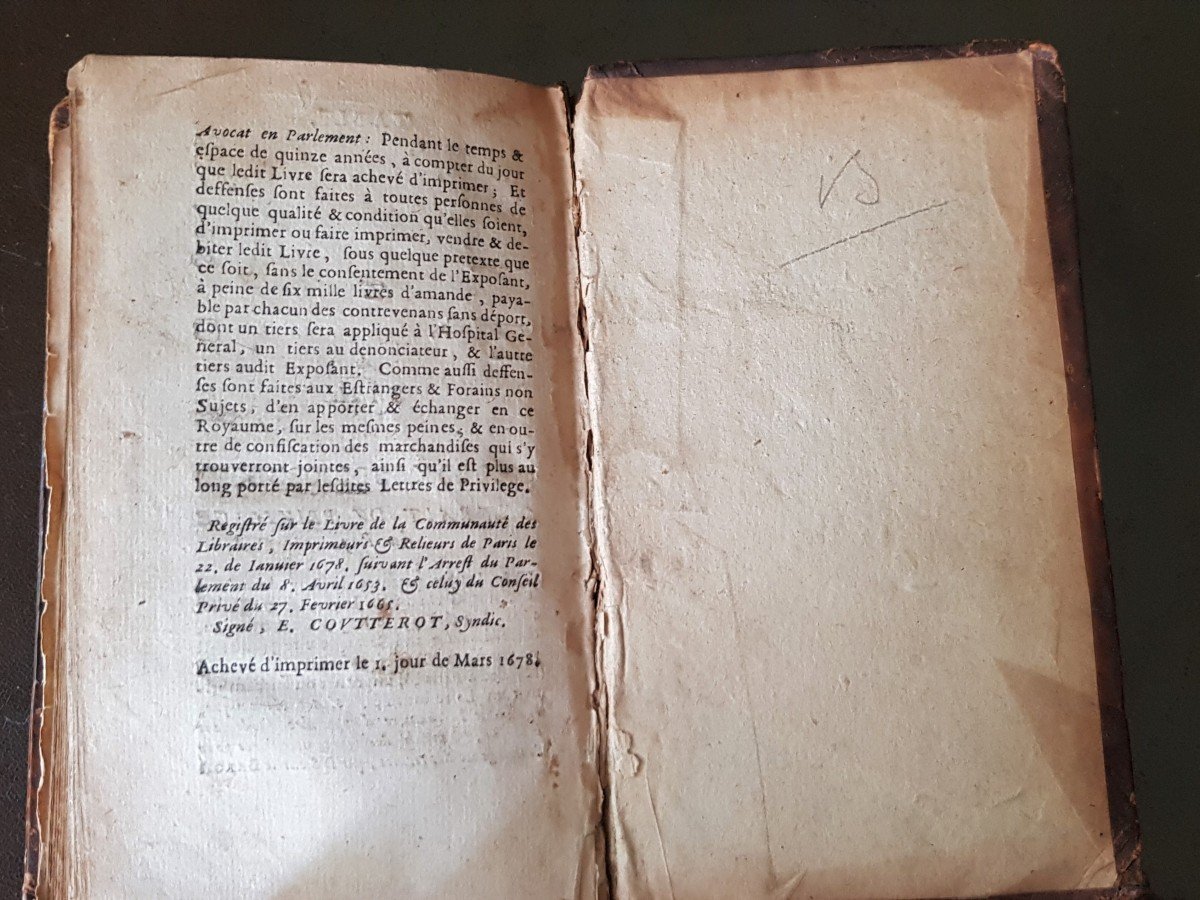 Avocat en Parlement : Pendant le temps &
eſpace de quinze années, à compter du jour
que ledit Livre ſera achevé d'imprimer ; Et
deffenſes ſont faites à toutes perſonnes de
quelque qualité & condition qu'elles ſoient,
d'imprimer ou faire imprimer, vendre & de-
biter ledit Livre, ſous quelque pretexte que
ce ſoit, ſans le conſentement de l'Expoſant,
à peine de ſix mille livres d'amande, paya-
ble par chacun des contrevenans ſans déport,
dont un tiers ſera appliqué à l'Hoſpital Ge-
neral, un tiers au denonciateur, & l'autre
tiers audit Expoſant. Comme auſſi deffen-
ſes ſont faites aux Eſtrangers & Forains non
Sujets, d'en apporter & échanger en ce
Royaume, ſur les meſmes peines, & en ou-
tre de confiſcation des marchandiſes qui s'y
trouverront jointes, ainſi qu'il est plus au
long porté par leſdites Lettres de Privilege.
Regiſtré ſur le Livre de la Communauté des
Libraires, Imprimeurs & Relieurs de Paris le
22. de Ianuier 1678. ſuivant l'Arreſt du Par-
lement du 8. Avril 1653. & celuy du Conſeil
Privé du 27. Fevrier 1665.
Signé, E. COVTTEROT, Syndic.
Achevé d'imprimer le 1. jour de Mars 1678.